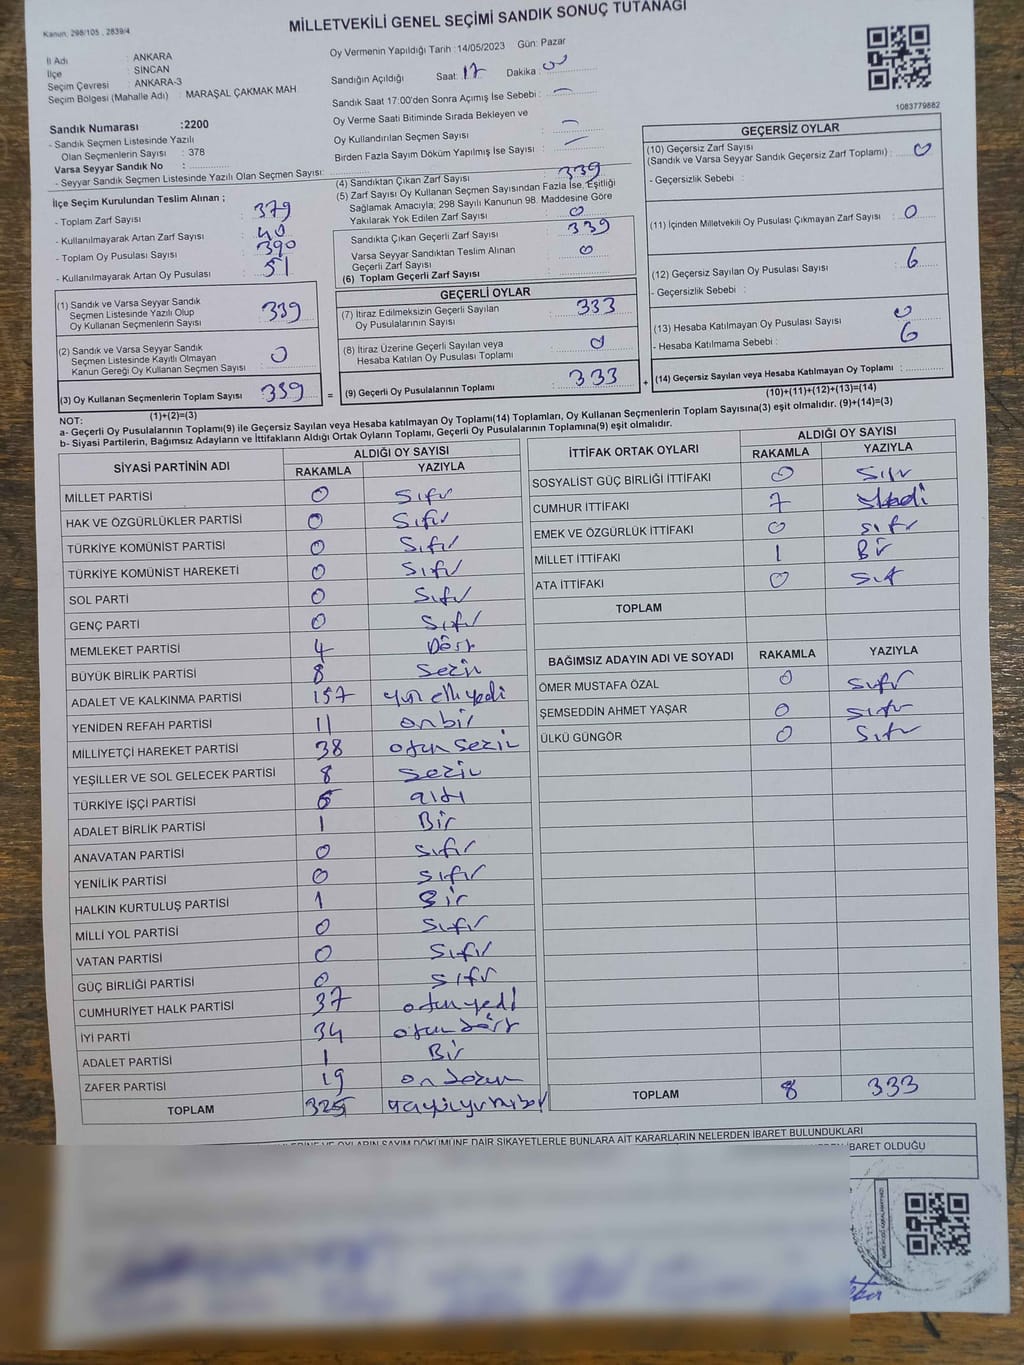 Kanun, 298/105 , 2839/4
MİLLETVEKİLİ GENEL SEÇİMİ SANDIK SONUÇ TUTANAĞI
İl Adı : ANKARA
İlçe : SİNCAN
Seçim Çevresi : ANKARA-3
Seçim Bölgesi (Mahalle Adı) : MARAŞAL ÇAKMAK MAH
Oy Vermenin Yapıldığı Tarih :14/05/2023 Gün: Pazar
Sandığın Açıldığı Saat: 17 Dakika :
Sandık Saat 17:00'den Sonra Açımış İse Sebebi :
Oy Verme Saati Bitiminde Sırada Bekleyen ve
Oy Kullandırılan Seçmen Sayısı :
Birden Fazla Sayım Döküm Yapılmış İse Sayısı :
1083779882
Sandık Numarası :2200
- Sandık Seçmen Listesinde Yazılı
Olan Seçmenlerin Sayısı : 378
Varsa Seyyar Sandık No :
- Seyyar Sandık Seçmen Listesinde Yazılı Olan Seçmen Sayısı:
İlçe Seçim Kurulundan Teslim Alınan ;
- Toplam Zarf Sayısı : 379
- Kullanılmayarak Artan Zarf Sayısı : 40
- Toplam Oy Pusulası Sayısı : 390
- Kullanılmayarak Artan Oy Pusulası : 51
(1) Sandık ve Varsa Seyyar Sandık
Seçmen Listesinde Yazılı Olup
Oy Kullanan Seçmenlerin Sayısı : 339
(2) Sandık ve Varsa Seyyar Sandık
Seçmen Listesinde Kayıtlı Olmayan
Kanun Gereği Oy Kullanan Seçmen Sayısı : 0
(3) Oy Kullanan Seçmenlerin Toplam Sayısı : 339
(1)+(2)=(3)
(4) Sandıktan Çıkan Zarf Sayısı : 339
(5) Zarf Sayısı Oy Kullanan Seçmen Sayısından Fazla İse, Eşitliği
Sağlamak Amacıyla, 298 Sayılı Kanunun 98. Maddesine Göre
Yakılarak Yok Edilen Zarf Sayısı : 0
Sandıkta Çıkan Geçerli Zarf Sayısı : 339
Varsa Seyyar Sandıktan Teslim Alınan
Geçerli Zarf Sayısı : 0
(6) Toplam Geçerli Zarf Sayısı :
GEÇERLİ OYLAR
(7) İtiraz Edilmeksizin Geçerli Sayılan
Oy Pusulalarının Sayısı : 333
(8) İtiraz Üzerine Geçerli Sayılan veya
Hesaba Katılan Oy Pusulası Toplamı : 0
= (9) Geçerli Oy Pusulalarının Toplamı : 333 +
GEÇERSİZ OYLAR
(10) Geçersiz Zarf Sayısı
(Sandık ve Varsa Seyyar Sandık Geçersiz Zarf Toplamı) : 0
- Geçersizlik Sebebi :
(11) İçinden Milletvekili Oy Pusulası Çıkmayan Zarf Sayısı : 0
(12) Geçersiz Sayılan Oy Pusulası Sayısı : 6
- Geçersizlik Sebebi :
(13) Hesaba Katılmayan Oy Pusulası Sayısı : 0
- Hesaba Katılmama Sebebi : 6
(14) Geçersiz Sayılan veya Hesaba Katılmayan Oy Toplamı :
(10)+(11)+(12)+(13)=(14)
NOT:
a- Geçerli Oy Pusulalarının Toplamı(9) ile Geçersiz Sayılan veya Hesaba katılmayan Oy Toplamı(14) Toplamları, Oy Kullanan Seçmenlerin Toplam Sayısına(3) eşit olmalıdır. (9)+(14)=(3)
b- Siyasi Partilerin, Bağımsız Adayların ve İttifakların Aldığı Ortak Oyların Toplamı, Geçerli Oy Pusulalarının Toplamına(9) eşit olmalıdır.
SİYASİ PARTİNİN ADI ALDIĞI OY SAYISI
RAKAMLA YAZIYLA
MİLLET PARTİSİ 0 Sıfır
HAK VE ÖZGÜRLÜKLER PARTİSİ 0 Sıfır
TÜRKİYE KOMÜNİST PARTİSİ 0 Sıfır
TÜRKİYE KOMÜNİST HAREKETİ 0 Sıfır
SOL PARTİ 0 Sıfır
GENÇ PARTİ 0 Sıfır
MEMLEKET PARTİSİ 4 Dört
BÜYÜK BİRLİK PARTİSİ 8 Sekiz
ADALET VE KALKINMA PARTİSİ 157 yüz elli yedi
YENİDEN REFAH PARTİSİ 11 on bir
MİLLİYETÇİ HAREKET PARTİSİ 38 otuz sekiz
YEŞİLLER VE SOL GELECEK PARTİSİ 8 sekiz
TÜRKİYE İŞÇİ PARTİSİ 6 altı
ADALET BİRLİK PARTİSİ 1 Bir
ANAVATAN PARTİSİ 0 sıfır
YENİLİK PARTİSİ 0 sıfır
HALKIN KURTULUŞ PARTİSİ 1 Bir
MİLLİ YOL PARTİSİ 0 Sıfır
VATAN PARTİSİ 0 Sıfır
GÜÇ BİRLİĞİ PARTİSİ 0 sıfır
CUMHURİYET HALK PARTİSİ 37 otuz yedi
İYİ PARTİ 34 otuz dört
ADALET PARTİSİ 1 Bir
ZAFER PARTİSİ 19 on dokuz
TOPLAM 325
İTTİFAK ORTAK OYLARI ALDIĞI OY SAYISI
RAKAMLA YAZIYLA
SOSYALİST GÜÇ BİRLİĞİ İTTİFAKI 0 Sıfır
CUMHUR İTTİFAKI 7 Yedi
EMEK VE ÖZGÜRLÜK İTTİFAKI 0 sıfır
MİLLET İTTİFAKI 1 Bir
ATA İTTİFAKI 0 sıfır
TOPLAM
BAĞIMSIZ ADAYIN ADI VE SOYADI RAKAMLA YAZIYLA
ÖMER MUSTAFA ÖZAL 0 sıfır
ŞEMSEDDİN AHMET YAŞAR 0 sıfır
ÜLKÜ GÜNGÖR 0 sıfır
TOPLAM 8 333
OYLARIN SAYIM DÖKÜMÜNE DAİR ŞİKAYETLERLE BUNLARA AİT KARARLARIN NELERDEN İBARET BULUNDUKLARI
İBARET OLDUĞU